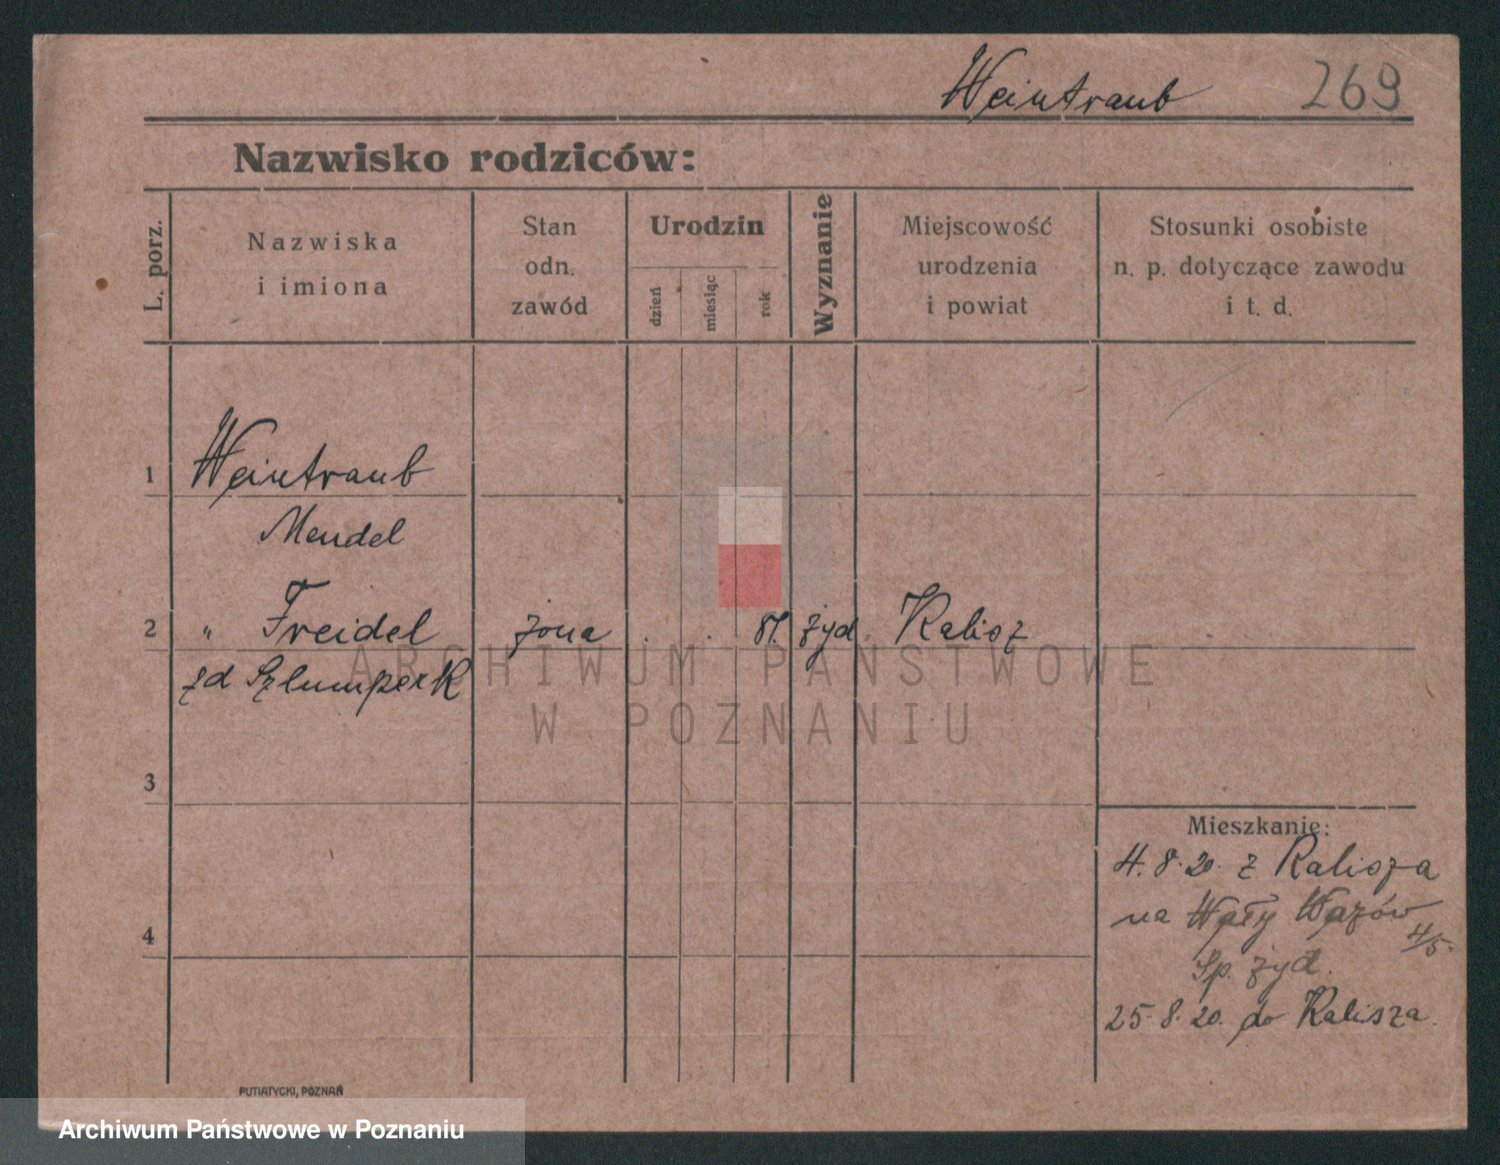 Weintraub 269
Nazwisko rodziców:
L. porz.
Nazwiska
i imiona
Stan
odn.
zawód
Urodzin
dzień
miesiąc
rok
Wyznanie
Miejscowość
urodzenia
i powiat
Stosunki osobiste
n. p. dotyczące zawodu
i t. d.
1 Weintraub
Mendel
2 " Freidel żona . . 81. żyd. Kalisz
zd Szlumperk
3
4
Mieszkanie:
4.8.20. z Kalisza
na Wały Wazów
4/5.
Sp. żyd.
25.8.20. do Kalisza.
PUTIATYCKI, POZNAŃ
ARCHIWUM PAŃSTWOWE
W POZNANIU
Archiwum Państwowe w Poznaniu